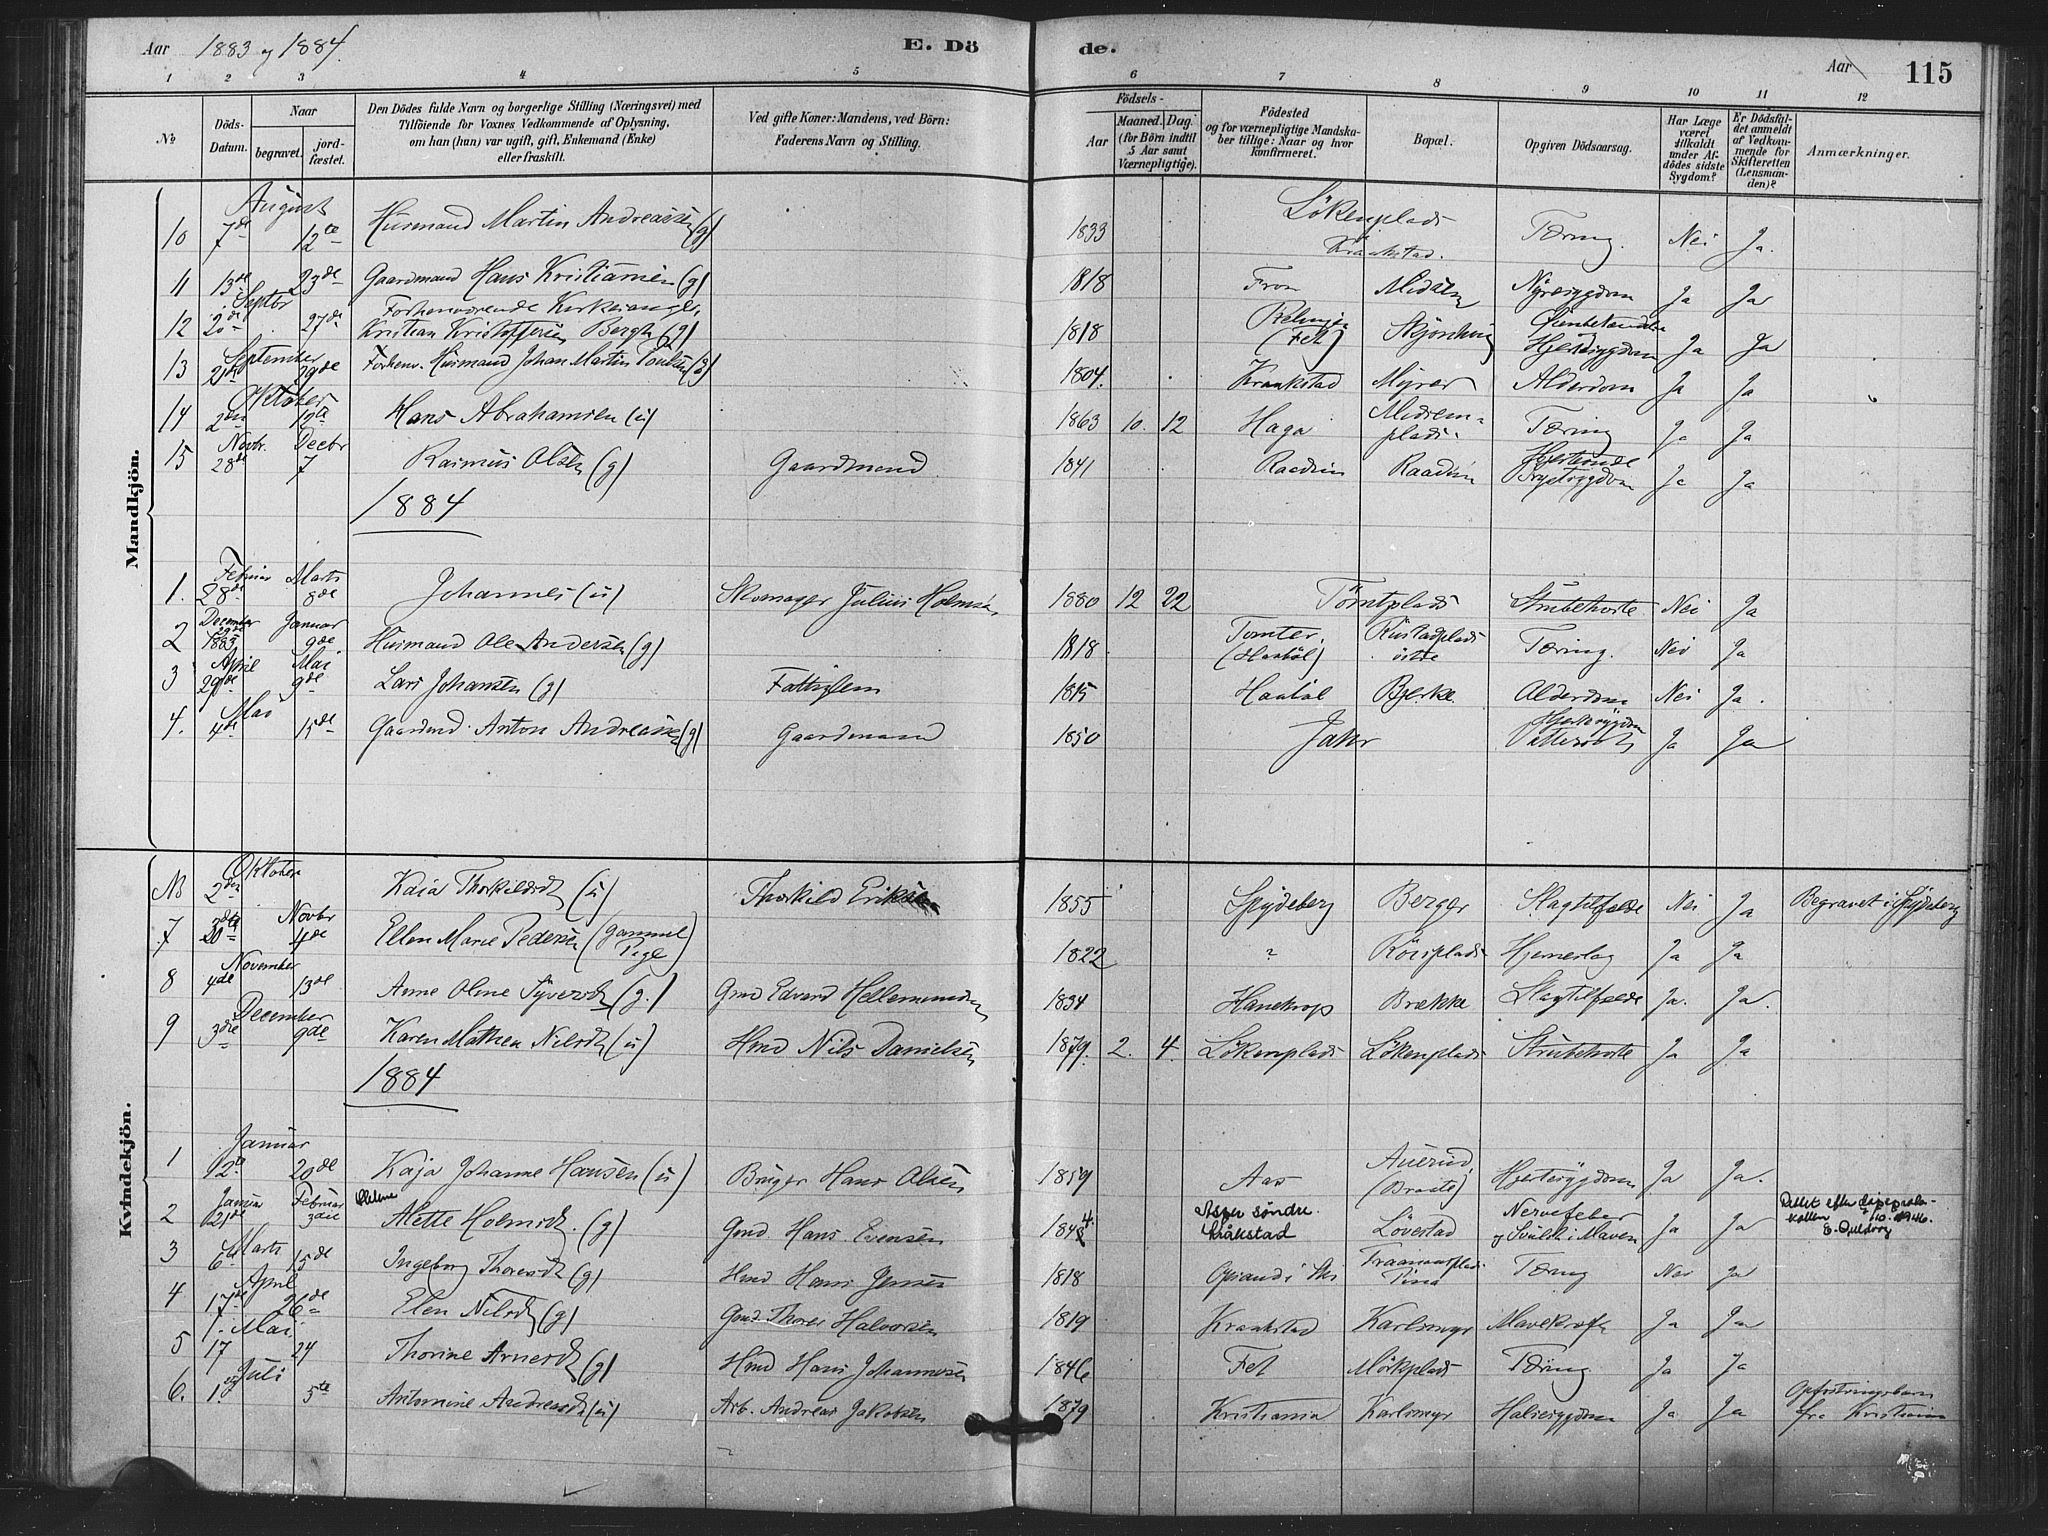 Aar 1883 og 1884. E. Dö de. Aar 115
1 2 3 4 5 6 7 8 9 10 11 12
No Döds-Datum. Naar begravet. jordfæstet. Den Dödes fulde Navn og borgerlige Stilling (Næringsvei) med Tilföiende for Voxnes Vedkommende af Oplysning, om han (hun) var ugift, gift, Enkemand (Enke) eller fraskilt. Ved gifte Koner: Mandens, ved Börn: Faderens Navn og Stilling. Födsels- Aar Maaned. Dag. (for Börn indtil 5 Aar samt Værnepligtige). Födested og for værnepligtige Mandskaber tillige: Naar og hvor konfirmeret. Bopæl. Opgiven Dödsaarsag. Har Læge været tilkaldt under Afdödes sidste Sygdom? Er Dödsfaldet anmeldt af Vedkommende for Skifteretten (Lensmanden)? Anmærkninger.
Mandkjön.
August
10 7de 12te Husmand Martin Andreassen (g) 1833 Lökenplads Kraakstad. Tæring. Nei Ja.
11 13de 23de Gaardmand Hans Kristiansen (g) 1818 Fron Midtun Nyresygdom Ja Ja
Septbr Forhenværende Kirkesanger
12 20de 27de Kristian Kristoffersen Bergh (g) 1818 (Fet) Hjertesygdom Ja Ja
September
13 29de Forhenv. Husmand Johan Martin Poulsen (g) 1804. Kraakstad Myrer Alderdom Ja Ja
Oktober
14 2den 12te Hans Abrahamsen (u) 1863 10 12 Haga plads. Tæring Ja Ja
Novbr. Decbr
15 28de 7 Rasmus Olsen (g) Gaardmand 1841 Raadim Raadim Brystsygdom Ja Ja
1884
Februar Marts
1. 28de 8de Johannes (u) Skomager Julius Holmsen 1880 12 22 Tömtplads Strubehoste Nei Ja
December 29de Januar
2 1883 9de Husmand Ole Andersen (g) 1818 Tomter. (Haaböl) Rustadplads östre Tæring. Nei Ja
April Mai
3 29de 9de Lars Johansen (g) Fattiglem 1815 Haaböl Bjerke Alderdom Nei Ja.
Mai
4. 4de 15de Gaardmd. Anton Andreassen (g) Gaardmand 1850 Hjertesygdom Ja Ja
Kvindekjön.
Oktober
No 2den Kaja Thorkildsdt (u) Thorkild Eriksen 1855 Spydeberg Berger Slagtilfælde Nei Ja Begravet i Spydeberg
Novbr
7 20de 4de Ellen Marie Pedersen (gammel Pige) 1822 " Rösiplads Hjerneslag Ja Ja
November
8 4de 13de Anne Oline Syversdt (g.) Gmd Edvard Hellemundsen 1834 Hanekrop Brække Slagtilfælde Ja. Ja.
December
9 3die 9de Karen Mathea Nilsdt (u) Hmd Nils Danielsen 1879. 2. 4. Lökenplads Lökenplads Strubehoste Ja Ja
1884
Januar
1 12te 20de Kaja Johanne Hansen (u) Bruger Hans Olsen 1859 Aas Auerud (Braate) Hjertesygdom Ja Ja.
Januar Februar Helene
2 21de 3die Alette Holmsdt. (g) Gmd. Hans Evensen 1844 Asper söndre. Kråkstad Lövestad Nervefeber og Svulst i Maven Ja Ja Rettet efter dåpsprotokollen 10. 1946.
Marts
3 6te 15de Ingeborg Thoresdt (g) Hmd Hans Jensen 1818 Opsand i Ski Tæring Nei Ja
April
4 17de 26de Elen Nilsdt (g) Gmd. Thores Halvorsen 1819 Kraakstad Karlsmyr Mavekræft Ja Ja
Mai
5 17 24 Thorine Arnesdt (g) Hmd Hans Johannesen 1846 Fet Mörkplads Tæring Ja Ja
Juli
6. 1. 5te Antonine Andreasdt (u) Arb. Andreas Jakobsen 1879 Kristiania Karlsmyr Halsesygdom Ja Ja Opfostringsbarn fra Kristiania